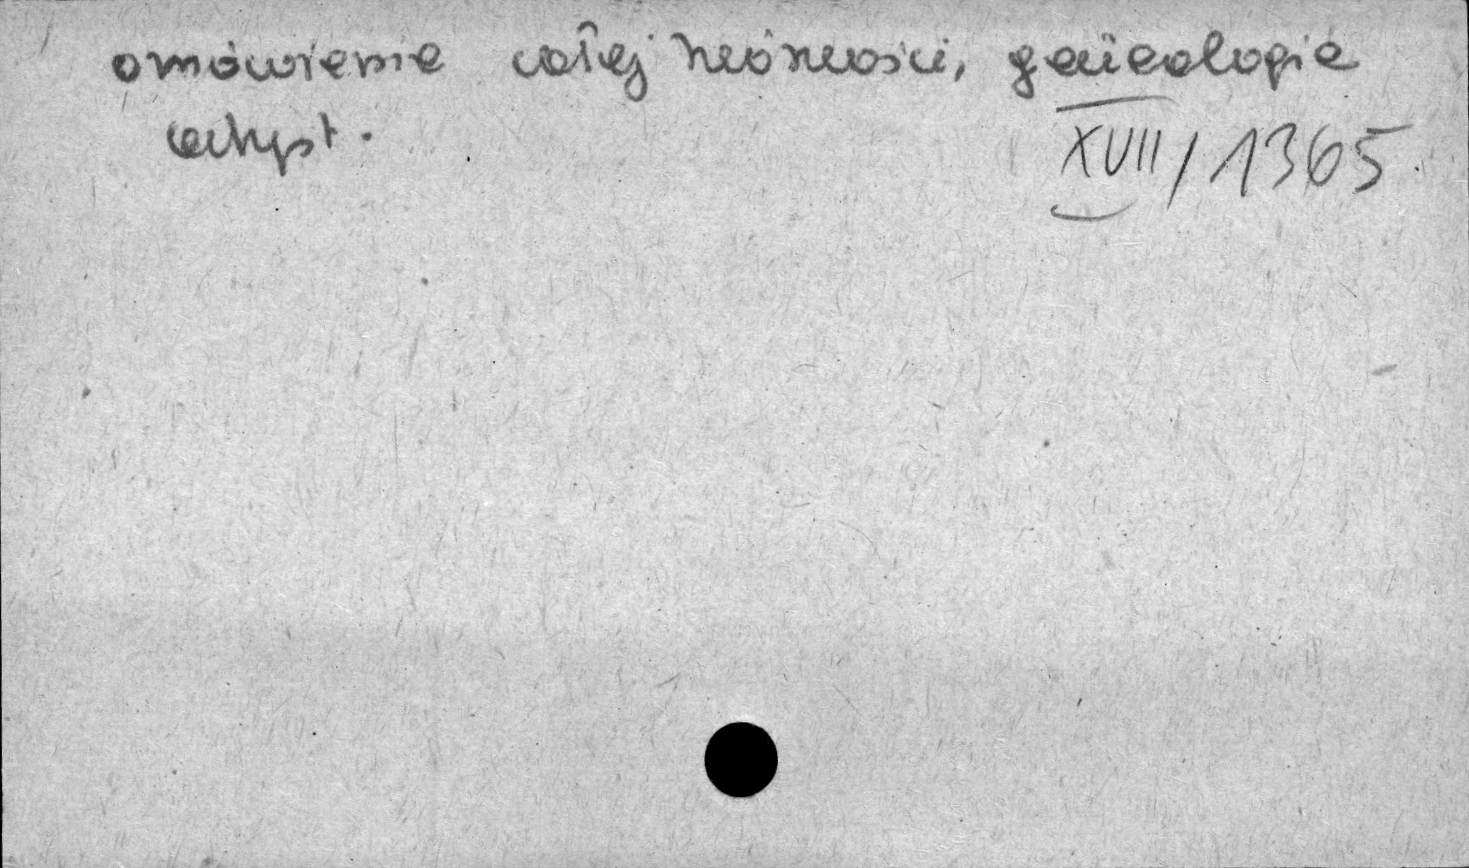 omówienie całej twórczości, genealogie
artyst.
XVII/1365.